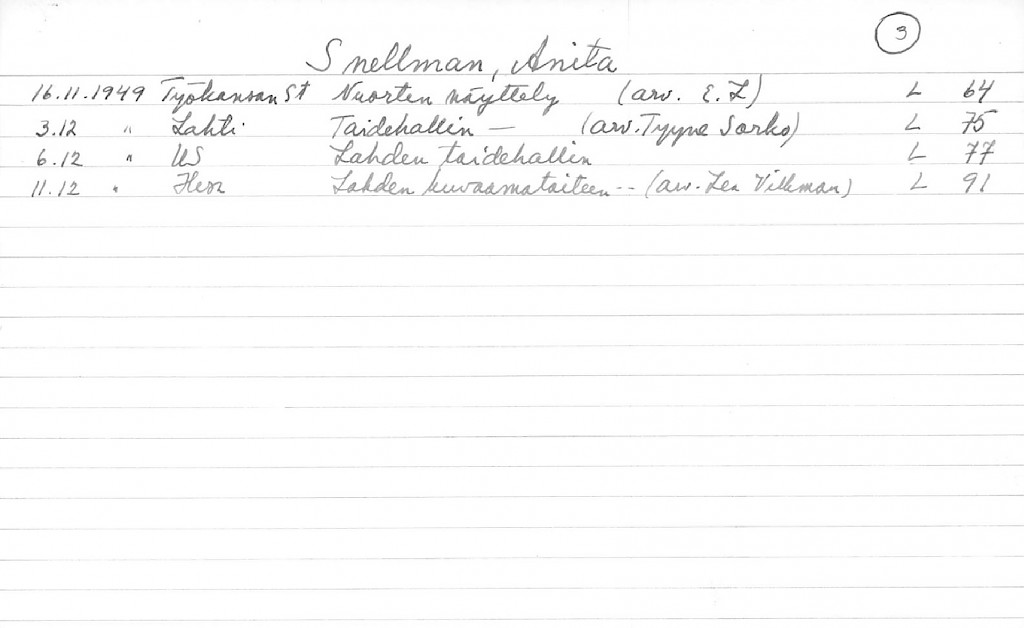 3
Snellman, Anita
16.11.1949 Työkansan St Nuorten näyttely (arv. E. L) L 64
3.12 " Lahti Taidehallin — (arv. Tyyne Sarko) L 75
6.12 " US Lahden taidehallin L 77
11.12 " Lahden kuvaamataiteen -- (arv. Lea Villman) L 91